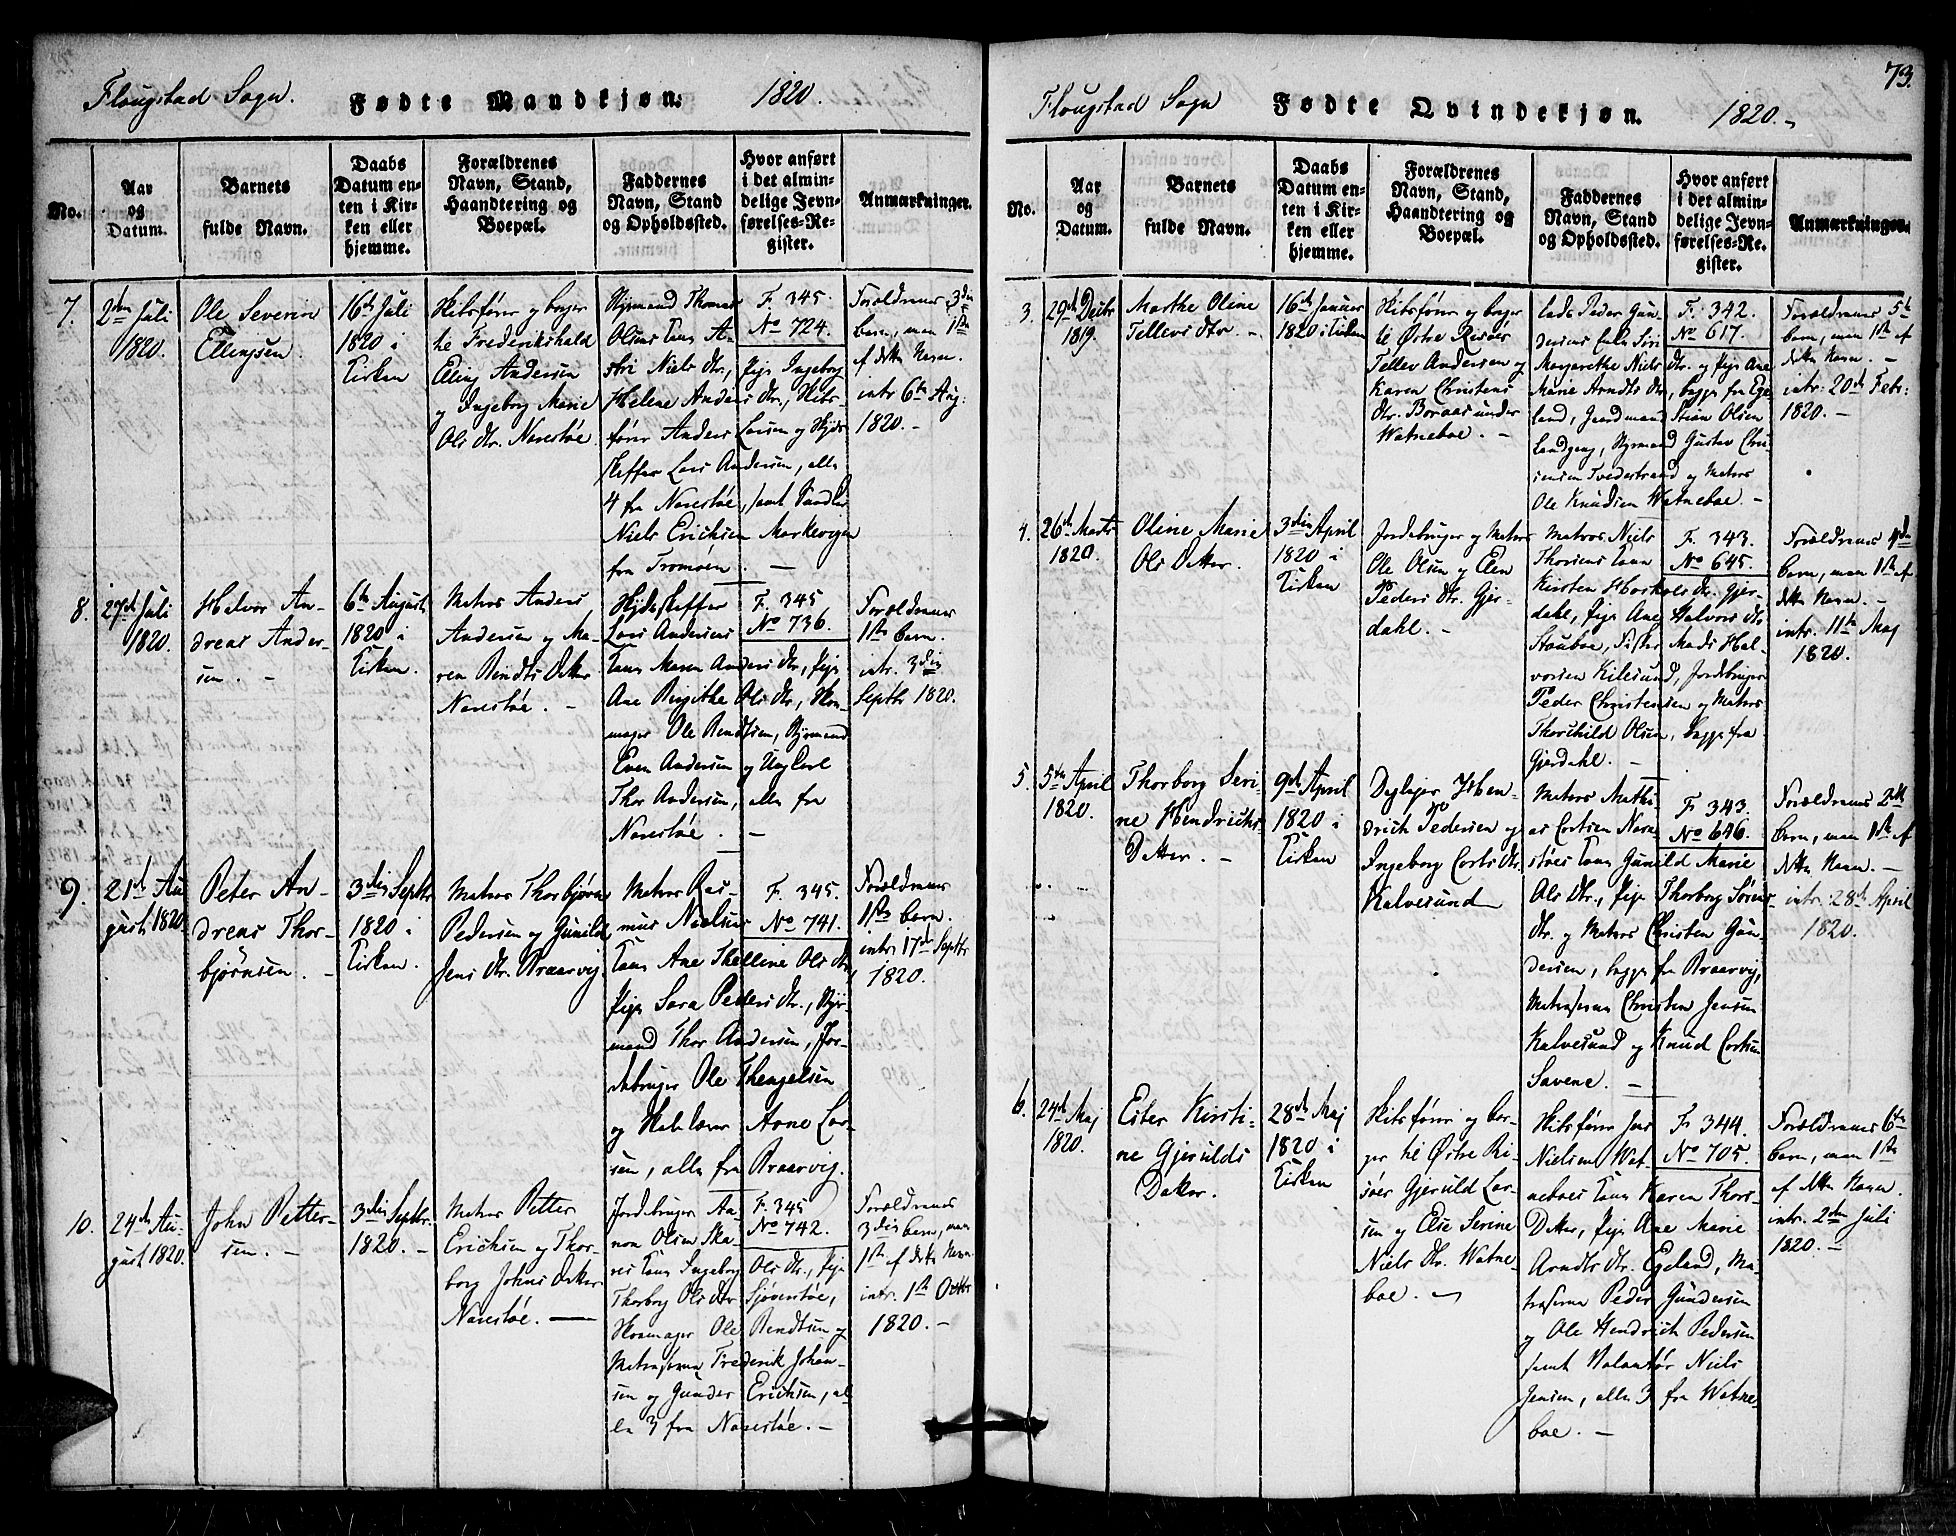 Flougstad Sogn.
Fødte Mandkjøn.
1820.
No.
Aar
og
Datum.
Barnets
fulde Navn.
Daabs
Datum en-
ten i Kir-
ken eller
hjemme.
Forældrenes
Navn, Stand,
Haandtering og
Boepæl.
Faddernes
Navn, Stand
og Opholdssted.
Hvor anført
i det almin-
delige Jevn-
førelses-Re-
gister.
Anmærkninger.
7.
2den Juli
1820.
Ole Severin
Ellingsen.
16de Juli
1820 i
Kirken
til Frederikshald
Elling Andersen
og Ingeborg Marie
Ols Dtr. Narestøe
Styrmand Thomas
Olsens Kone A-
stri Niels Dtr., Pige Ingeborg
Helene Anders Dtr., Skibs-
fører Anders Larsen og
Lars Andersen, alle
4 fra Narestøe, samt
Niels Erichsen Markevigen
fra Tromøen. —
F. 345.
No 724.
Forældrenes 3die
barn, men 1ste
af dette Navn.
intr. 6te Aug:
1820. —
8.
27de Juli
1820.
Halvor An-
dreas Ander-
sen. —
6te August
1820 i
Kirken.
Matros Anders
Andersen og Ma-
ren Bendts Datter
Narestøe. —
Lars Andersens
Kone Maren Anders Dtr., Pige
Ane Birgithe Ols Dtr., Skoe-
mager Ole Bendtsen, Styrmand
Even Andersen og Ungkarl
Thor Andersen, alle fra
Narestøe. —
F. 345
No 736.
Forældrenes
1ste barn.
intr. 3die
Septbr 1820.
9.
21de Au-
gust 1820
Peter An-
dreas Thor-
bjørnsen. —
3die Septbr
1820 i
Kirken.
Matros Thorbjørn
Pedersen og Gunild
Jens Dtr. Braarvig.
Matros Ras-
mus Nielsens
Kone Ane Thelline Ols Dtr.
Pige Sara Peders Dtr., Styr-
mand Thor Andersen, Jor-
debruger Ole Thengelsen
og Arne Lar-
sen, alle fra Braarvig.
F. 345.
No 741.
Forældrenes
1ste barn.
intr. 17de Septbr
1820.
10.
24de Au-
gust 1820.
John Petter-
sen. —
3die Septbr.
1820. —
Matros Petter
Erichsen og Thor-
borg Johns Datter
Narestøe. —
Jordebruger Aa-
non Olsen Ska-
res Kone Ingeborg Ols Dtr., Pige
Thorborg Ols Dtr. Sjøverstøe,
Skoemager Ole Bendtsen og
Matroserne Frederik Johan-
sen og Gunder Erichsen, al-
le 3 fra Narestøe. —
F. 345
No 742.
Forældrenes
3die barn, men
1ste af dette Navn.
intr. 1ste Octbr
1820. —
73.
Flougstad Sogn
Fødte Qvindekjøn.
1820. —
No.
Aar
og
Datum.
Barnets
fulde Navn.
Daabs
Datum en-
ten i Kir-
ken eller
hjemme.
Forældrenes
Navn, Stand,
Haandtering og
Boepæl.
Faddernes
Navn, Stand
og Opholdssted.
Hvor anført
i det almin-
delige Jevn-
førelses-Re-
gister.
Anmærkninger.
3.
29de Decbr
1819.
Marthe Oline
Tellefs Dtr —
16de Januar
1820 i Kirken
Skibsfører og borger
til Østre Risøer
Tellef Andersen og
Karen Christens
Dtr. Boraas under
Watneboe. —
Lods Peder Gun-
dersens Enke Siri
Margarethe Niels Dtr. og Pige Ane
Marie Arndts Dtr, begge fra Ege-
land, Stian Olsen
Styrmand Gustav Chri-
stensen Tvedestrand og Matros
Ole Knudsen Watneboe. —
F. 342.
No 617.
Forældrenes 5te
barn, men 1ste af
dette Navn. —
intr. 20de Febr:
1820. —
4.
26de Marts
1820.
Oline Marie
Ols Datter.
3die April
1820 i
Kirken
Jordebruger og Matros
Ole Olsen og Elen
Peders Dtr. Gjer-
dahl. —
Matros Niels
Thorsens Kone
Kirsten Dtr. Gjer-
dahl, Pige Ane Halvors Dtr
Stauboe, Fisker Mads Hal-
vorsen Kilesund, Jordebruger
Peder Christensen og Matros
Thorchild Olsen, begge fra
Gjerdahl. —
F. 343.
No 645.
Forældrenes
barn, men 1ste af
dette Navn. —
intr. 11te Maj
1820.
5.
5te April
1820.
Thorborg Seri-
ne Hendrichs
Datter. —
9de April
1820 i
Kirken
Hen-
drich Pedersen og
Ingeborg Corts Dtr.
Kalvesund
Matros Mathi-
as Cortsen Nare-
støes Kone Gunild Marie
Ols Dtr., Pige Thorborg Sørens
Dtr. og Matros Christen Gun-
dersen, begge fra Braarvig,
Matroserne Christen Jensen
Kalvesund og Knud Cortsen
Savene. —
F. 343.
No 646.
Forældrenes 2det
barn, men 1ste af
dette Navn. —
intr. 28de April
1820.
6.
24de Maj
1820.
Ester Kirsti-
ne Gjerulds
Datter.
28de Maj
1820 i
Kirken
Skibsfører og bor-
ger til Østre Ri-
søer Gjeruld Lar-
sen og Else Serine
Niels Dtr. Watne-
boe. —
Skibsfører Jens
Nielsen Wat-
neboes Kone Karen Thors-
Datter, Pige Ane Marie
Arndts Dtr. Egeland, Ma-
troserne Peder Gundersen
og Ole Hendrich Pedersen
samt Niels
Jensen, alle 3 fra Watne-
boe. —
F. 344.
No 705.
Forældrenes 6te
barn, men 1ste
af dette Navn.
intr. 2den Juli
1820. —